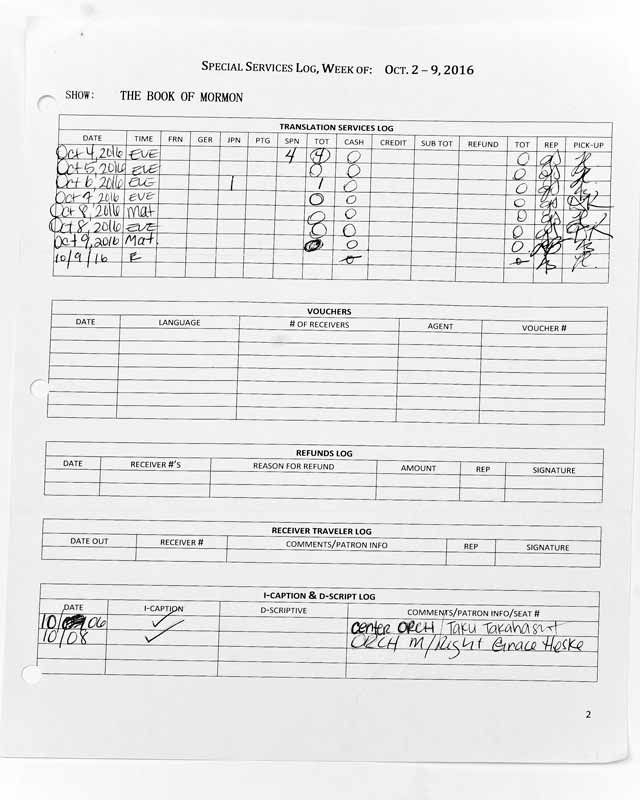 SPECIAL SERVICES LOG, WEEK OF: OCT. 2 – 9, 2016
SHOW: THE BOOK OF MORMON
TRANSLATION SERVICES LOG
DATE TIME FRN GER JPN PTG SPN TOT CASH CREDIT SUB TOT REFUND TOT REP PICK-UP
Oct 4, 2016 EVE 4 4 0 0
Oct 5, 2016 EVE 0 0 0
Oct 6, 2016 EVE 1 1 0 0
Oct 7 2016 EVE 0 0 0
Oct 8, 2016 Mat 0 0 0
Oct 8, 2016 EVE 0 0 0
Oct 9, 2016 Mat 0 0 0
10/9/16 E 0 0
VOUCHERS
DATE LANGUAGE # OF RECEIVERS AGENT VOUCHER #
REFUNDS LOG
DATE RECEIVER #'S REASON FOR REFUND AMOUNT REP SIGNATURE
RECEIVER TRAVELER LOG
DATE OUT RECEIVER # COMMENTS/PATRON INFO REP SIGNATURE
I-CAPTION & D-SCRIPT LOG
DATE I-CAPTION D-SCRIPTIVE COMMENTS/PATRON INFO/SEAT #
10/06 ✓ center ORCH / Taku
10/08 ✓ ORCH M/Right Grace Heske
2